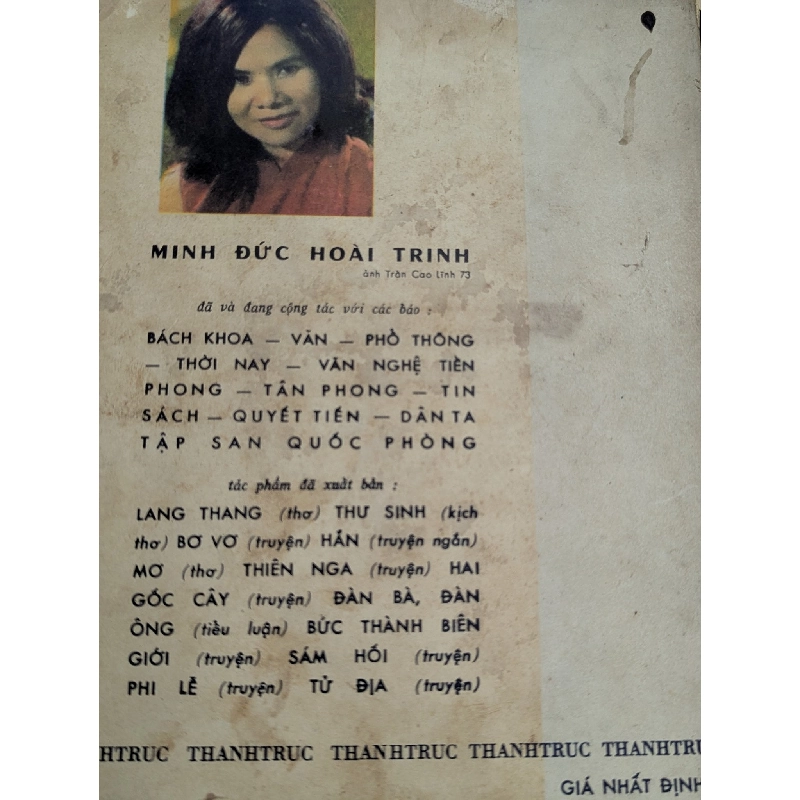 MINH ĐỨC HOÀI TRINH
ảnh Trần Cao Lĩnh 73
đã và đang cộng tác với các báo :
BÁCH KHOA — VĂN — PHỔ THÔNG
— THỜI NAY — VĂN NGHỆ TIỀN
PHONG — TÂN PHONG — TIN
SÁCH — QUYẾT TIẾN — DÂN TA
TẬP SAN QUỐC PHÒNG
tác phẩm đã xuất bản :
LANG THANG (thơ) THƯ SINH (kịch
thơ) BƠ VƠ (truyện) HẮN (truyện ngắn)
MƠ (thơ) THIÊN NGA (truyện) HAI
GỐC CÂY (truyện) ĐÀN BÀ, ĐÀN
ÔNG (tiểu luận) BỨC THÀNH BIÊN
GIỚI (truyện) SÁM HỐI (truyện)
PHI LỄ (truyện) TỬ ĐỊA (truyện)
HTRUC THANHTRUC THANHTRUC THANHTRUC THANHTRU
GIÁ NHẤT ĐỊNH